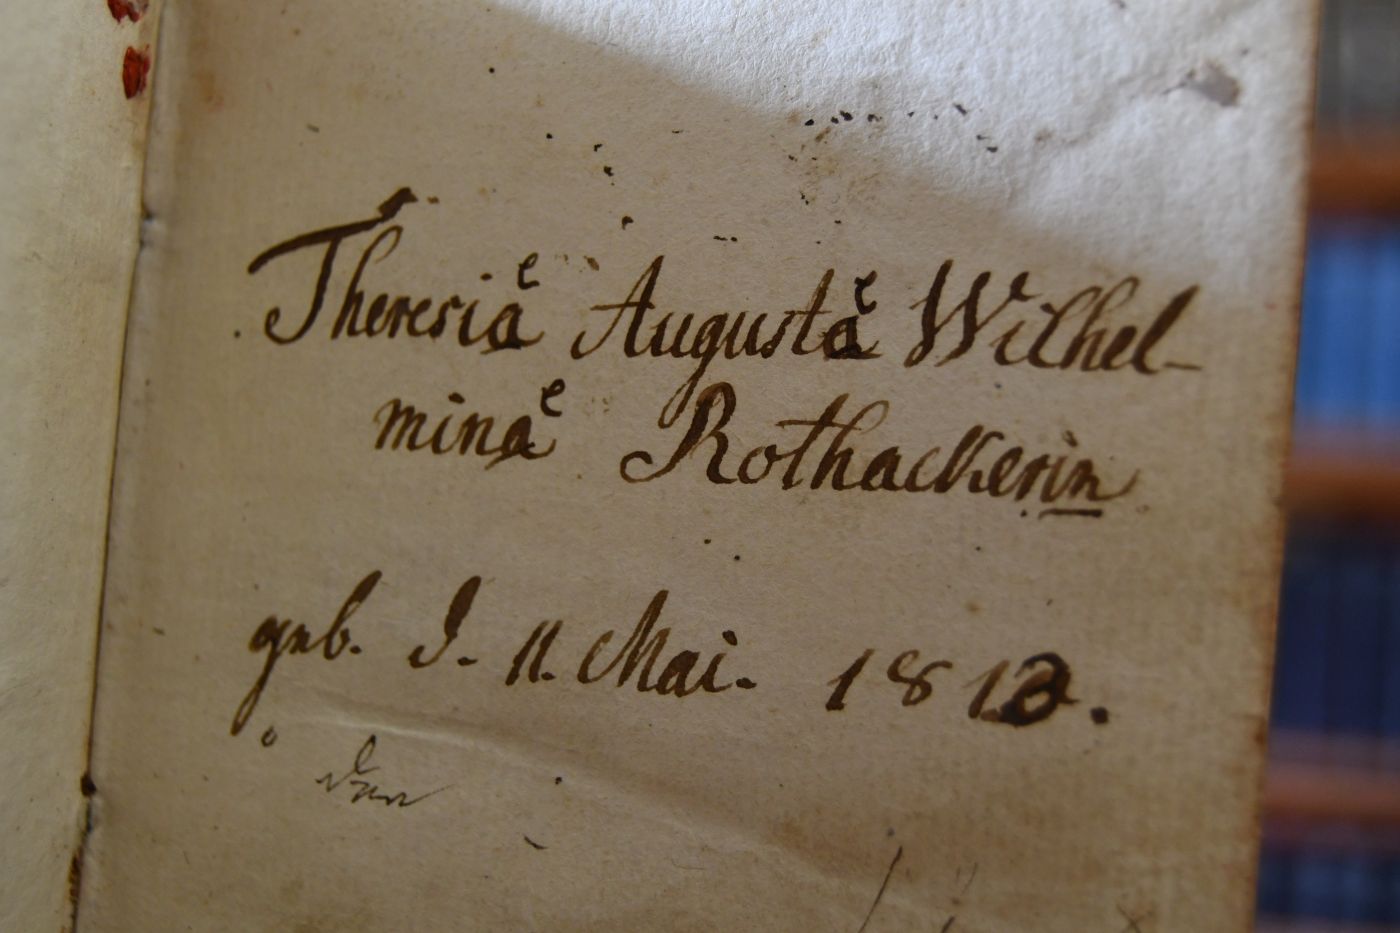 Theresiae Augustae Wilhel-
minae Rothackerin
geb. d. 11. Mai. 1812.
den